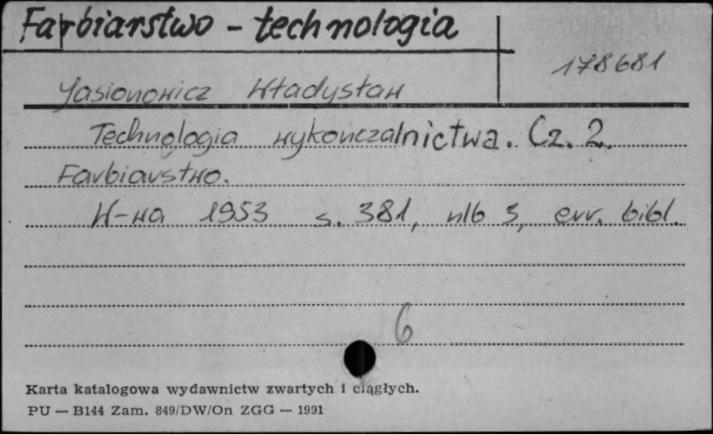 Farbiarstwo - technologia
178681
Jasionowicz Władysław
Technologia wykończalnictwa. Cz. 2.
Farbiarstwo.
W-wa 1953 s. 381, nlb 3, err. bibl.
6
Karta katalogowa wydawnictw zwartych i ciągłych.
PU — B144 Zam. 849/DW/On ZGG — 1991